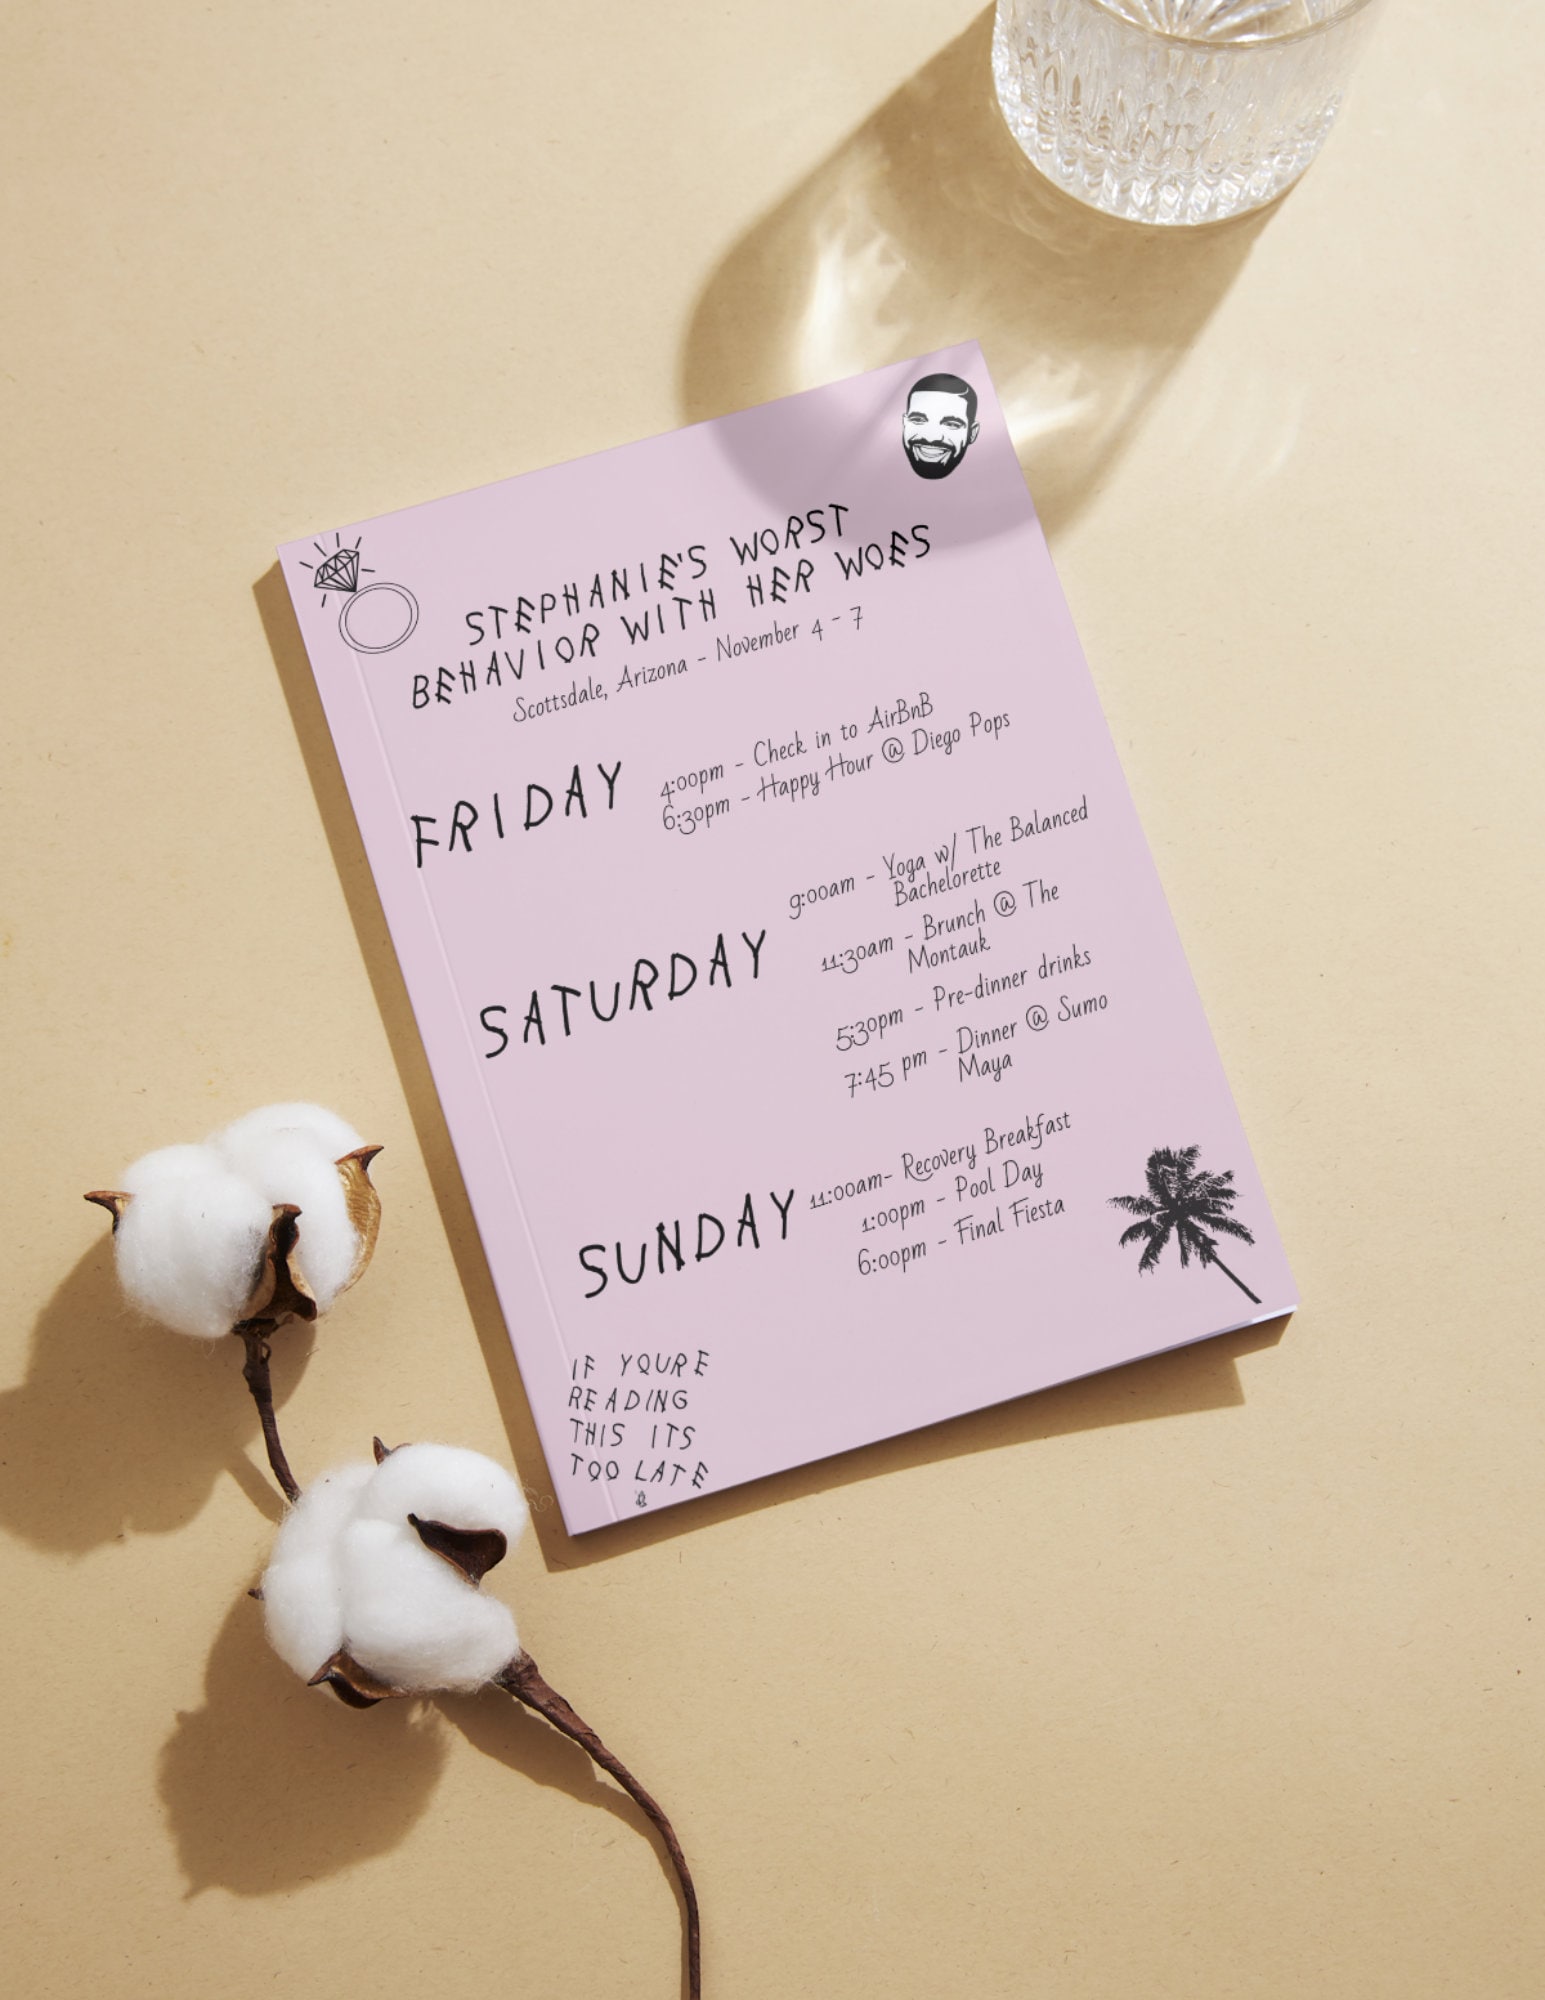 STEPHANIE'S WORST
BEHAVIOR WITH HER WOES
Scottsdale, Arizona - November 4 - 7
FRIDAY
4:00pm - Check in to AirBnB
6:30pm - Happy Hour @ Diego Pops
SATURDAY
9:00am - Yoga w/ The Balanced
Bachelorette
11:30am - Brunch @ The
Montauk
5:30pm - Pre-dinner drinks
7:45 pm - Dinner @ Sumo
Maya
SUNDAY
11:00am- Recovery Breakfast
1:00pm - Pool Day
6:00pm - Final Fiesta
IF YOURE
READING
THIS ITS
TOO LATE